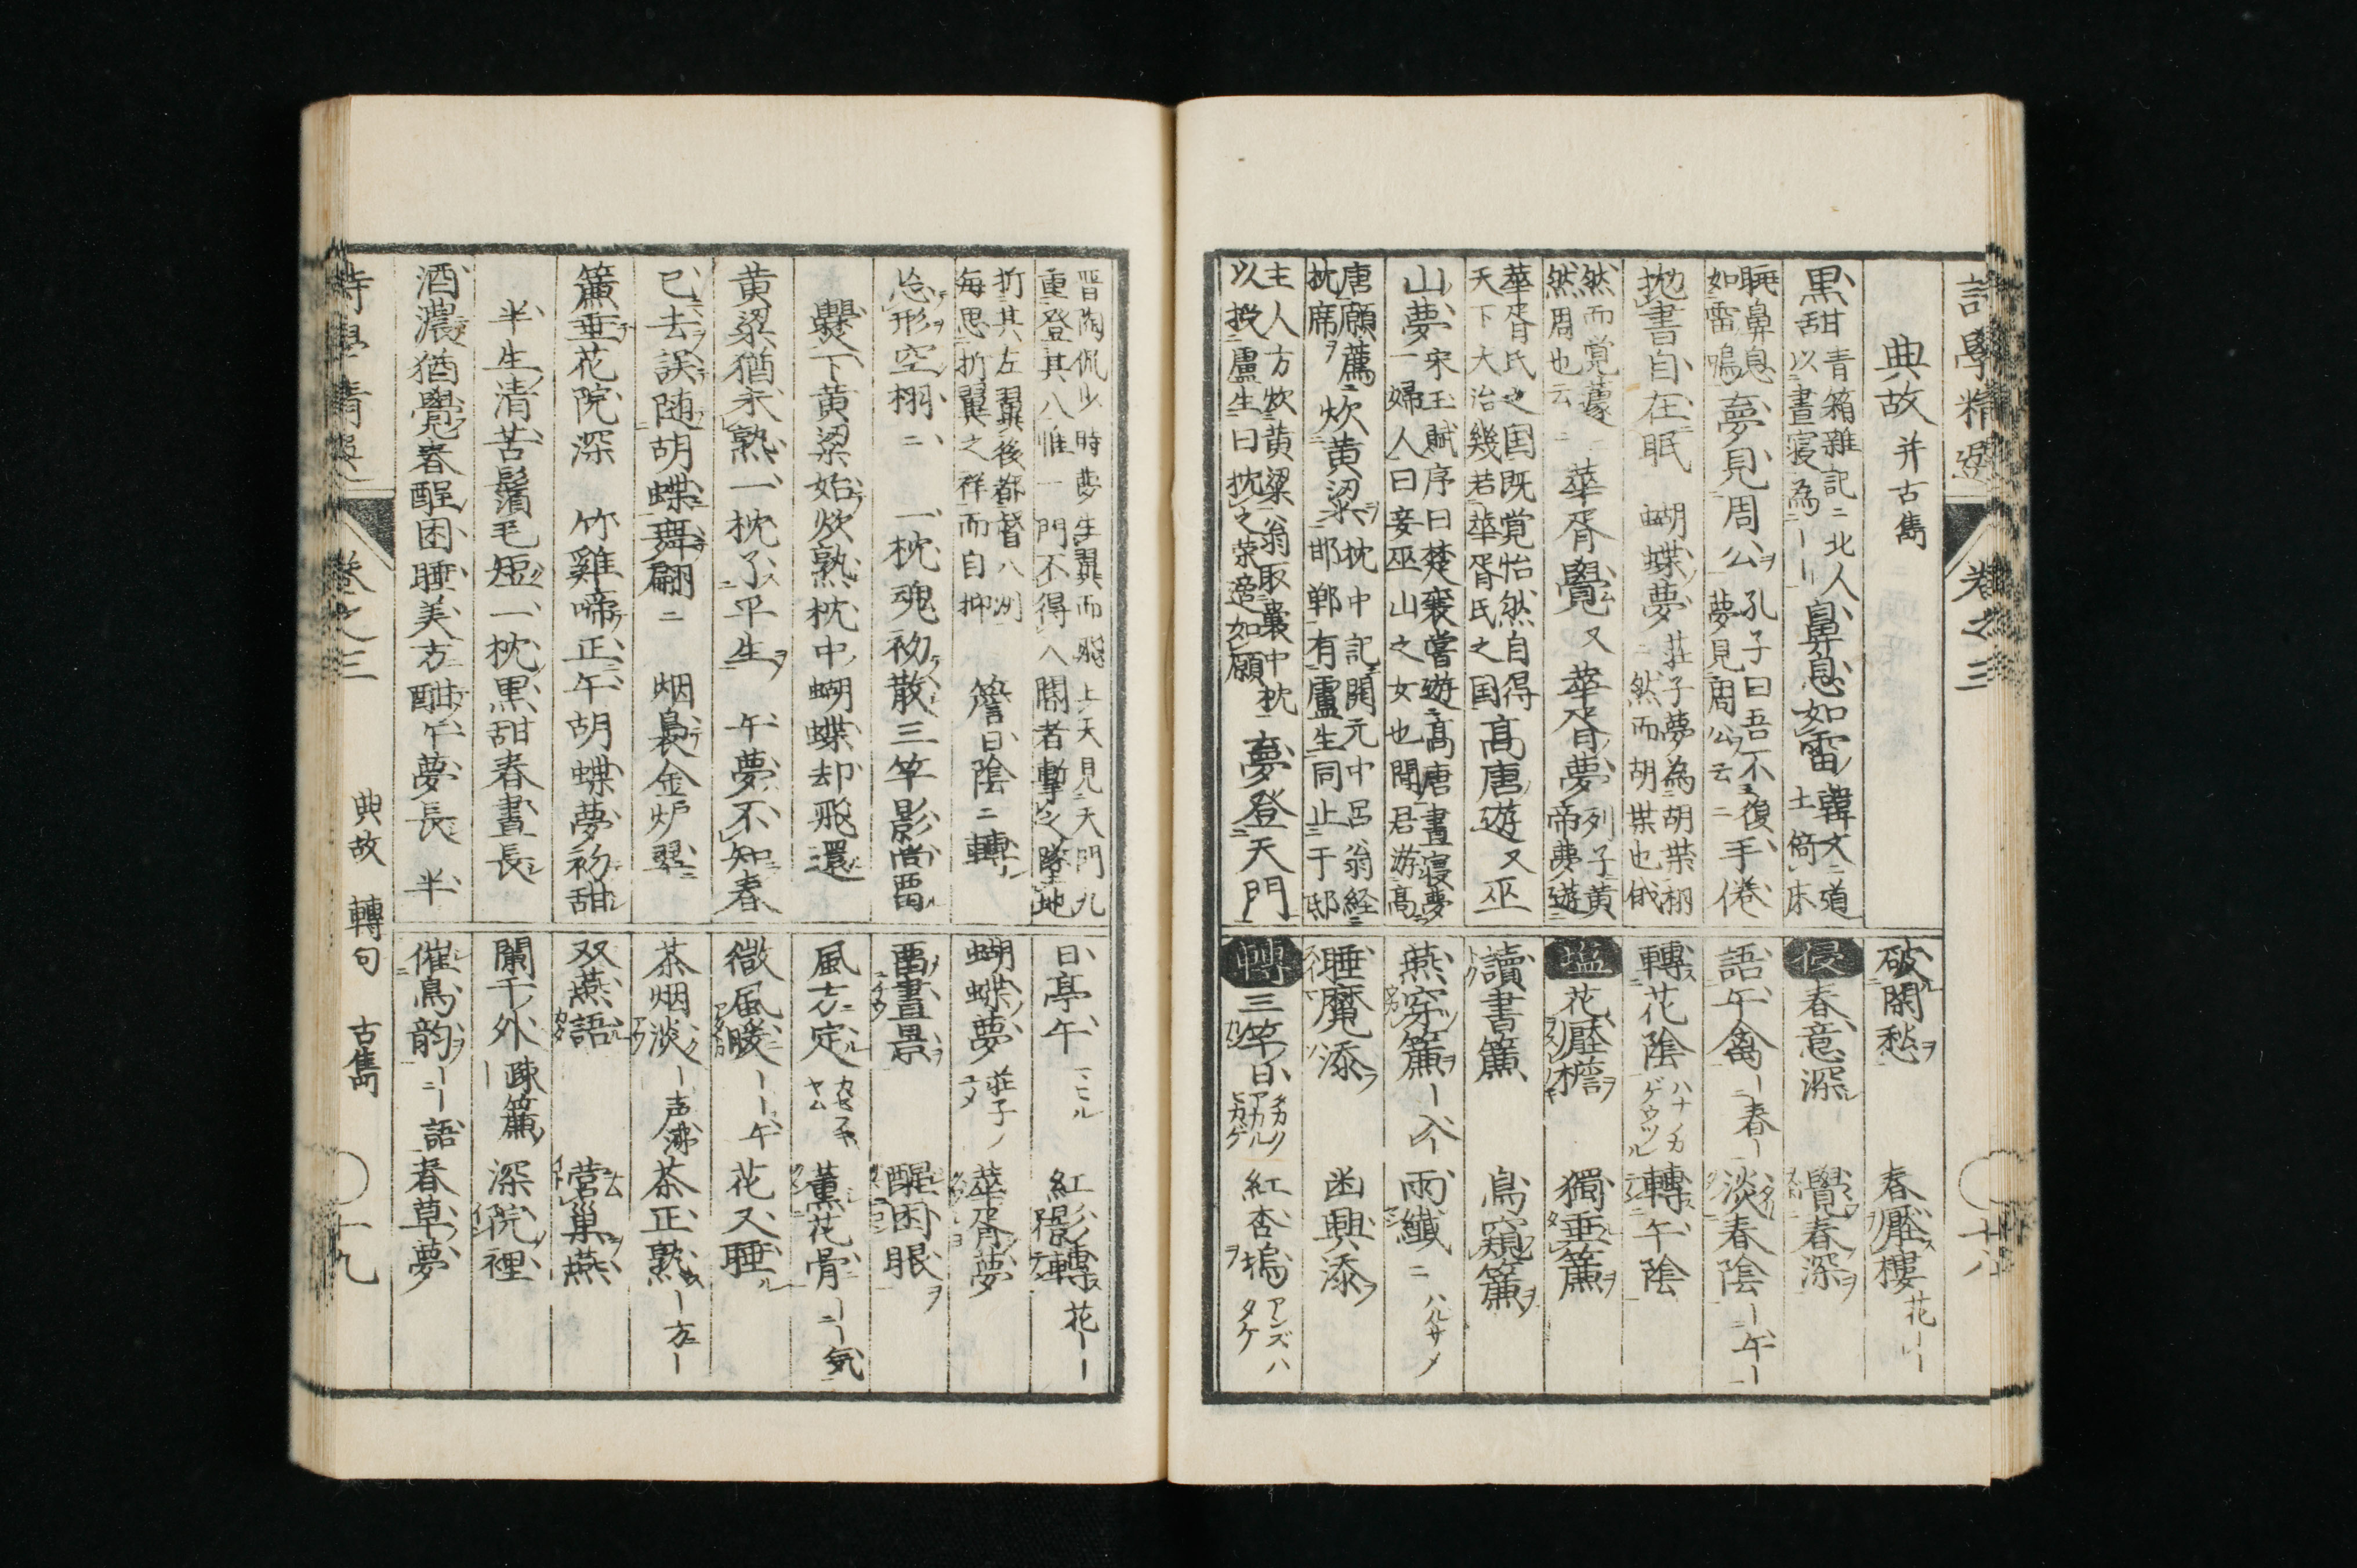 詩學精選 卷之三
典故 并古雋
黒甜 青箱雜記ニ北人以晝寝為ーー 鼻息如雷 韓文ニ道士倚床
睡鼻息如雷鳴 夢見周公 孔子曰吾不復夢見周公云ニ 手倦
抛書自在眠 蝴蝶夢 荘子夢為胡蝶栩然而胡蝶也俄
然而覚蘧然周也云ニ 華胥覺 又 華胥夢 列子黄帝夢遊
華胥氏之国既覚怡然自得天下大治幾若華胥氏之国 高唐遊 又 巫
山夢 宋玉賦序曰楚襄嘗遊高唐晝寝夢一婦人曰妾巫山之女也聞君游高
唐願薦枕席 炊黄粱 枕中記開元中呂翁経邯鄲有盧生同止于邸
主人方炊黄粱翁取嚢中枕以授盧生曰枕之荣適如願 夢登天門
破閑愁 春壓樓 花ーー
侵 春意深 覺春深
語午禽 ー春ー 淡春陰 ー午ー
轉花陰 ハナノカゲウツル 轉午陰
塩 花壓檐 獨垂簾
讀書簾 鳥窺簾
燕穿簾 ー入ー 雨纎ニ ハルサメ
睡魔添 幽興添
轉 三竿日 紅杏塢
晋陶侃少時夢生翼而飛上天見天門九重登其八惟一門不得入閽者撃之墜地
折其左翼後都督八洲毎思折翼之祥而自抑 簷日陰ニ轉
忘形空栩ニ 一枕魂初散三竿影尚畱
爨下黄粱始炊熟枕中蝴蝶却飛還
黄粱猶未熟一枕了平生 午夢不知春
已去誤随胡蝶舞翩ニ 烟裊金炉翠
簾垂花院深 竹雞啼正午胡蝶夢初甜
半生清苦鬚毛短一枕黒甜春晝長
酒濃猶覺春酲困睡美方酣午夢長 半
日亭午 マヒル 紅影轉 花ーー
蝴蝶夢 荘子ノユメ 華胥夢
畱晝景 醒困眼
風方定 薫花骨 ーニー気
微風暖 ーー午 花又睡
茶烟淡 ー声沸 茶正熟 ー方ー
双燕語 営巣燕
闌干外 ー疎簾 深院裡
催鳥韵 ーニー語 春草夢
詩學精選 卷之三 典故 轉句 古雋 十九